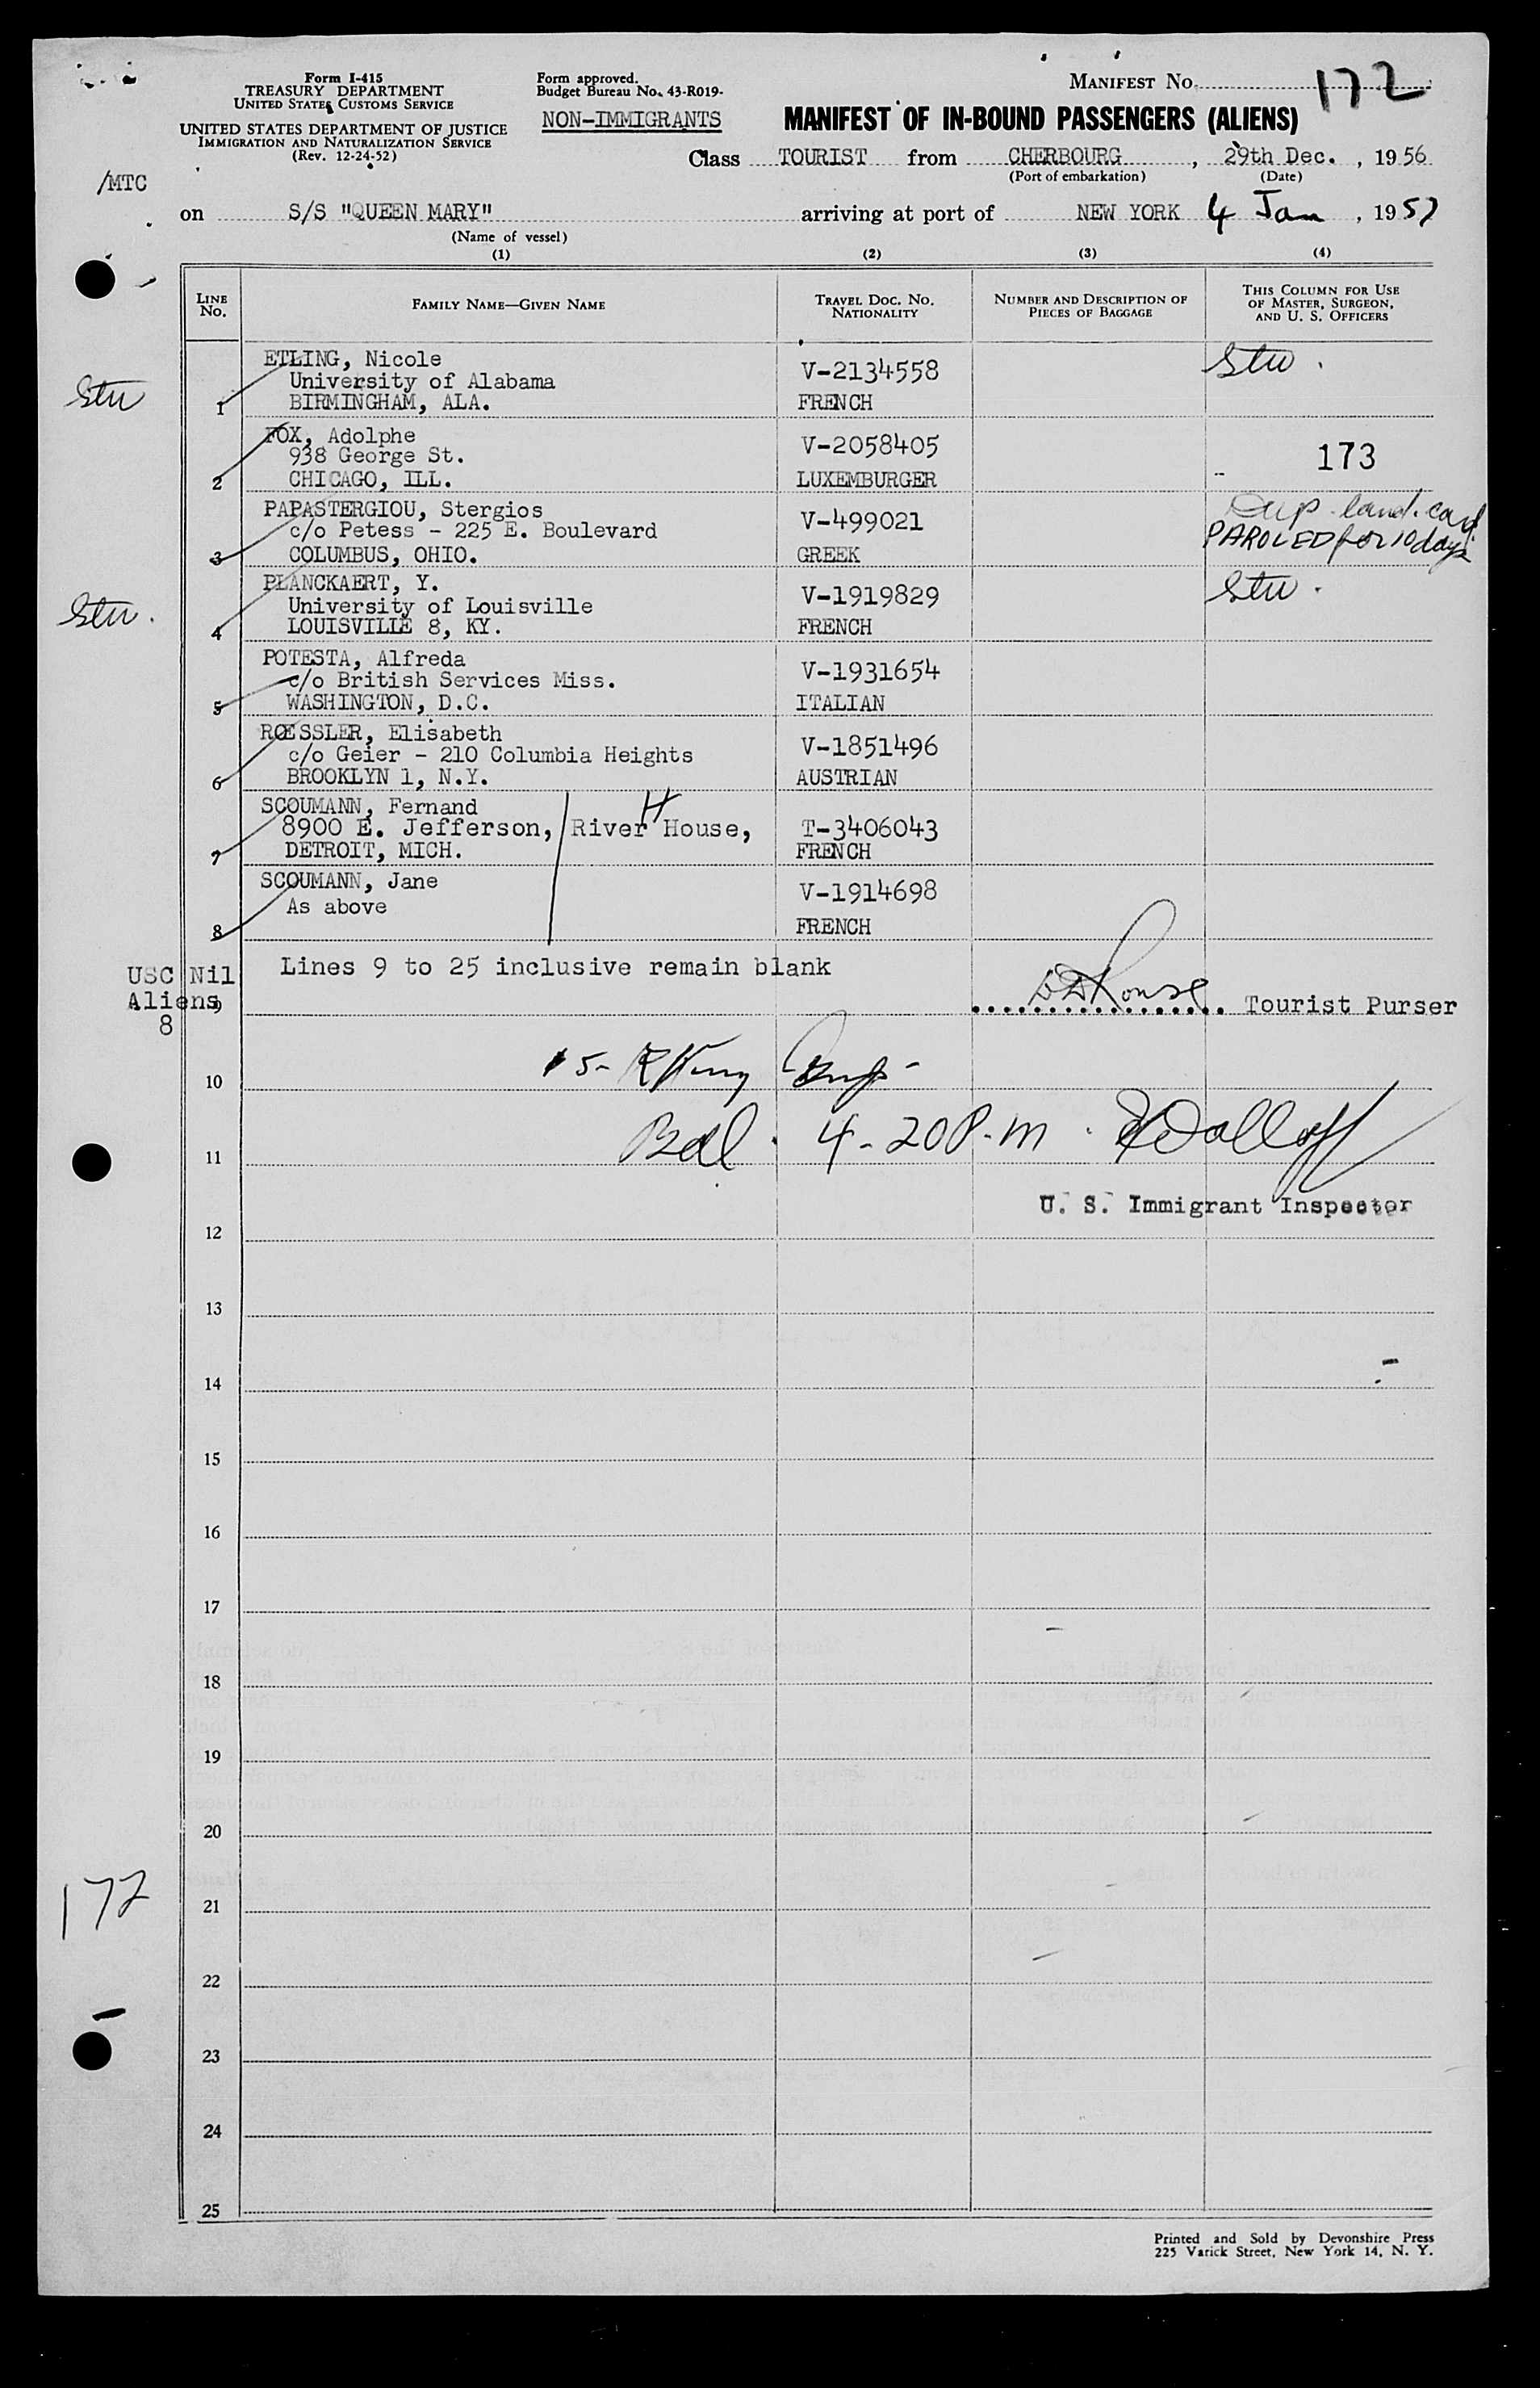 Form I-415
TREASURY DEPARTMENT
UNITED STATES CUSTOMS SERVICE
UNITED STATES DEPARTMENT OF JUSTICE
IMMIGRATION AND NATURALIZATION SERVICE
(Rev. 12-24-52)
Form approved.
Budget Bureau No. 43-R019-
NON-IMMIGRANTS
MANIFEST No. 172
MANIFEST OF IN-BOUND PASSENGERS (ALIENS)
Class TOURIST from CHERBOURG, 29th Dec., 1956
(Port of embarkation) (Date)
/MTC
on S/S "QUEEN MARY" arriving at port of NEW YORK 4 Jan, 1957
(Name of vessel)
(1) (2) (3) (4)
LINE No. FAMILY NAME—GIVEN NAME TRAVEL DOC. NO. NATIONALITY NUMBER AND DESCRIPTION OF PIECES OF BAGGAGE THIS COLUMN FOR USE OF MASTER, SURGEON, AND U. S. OFFICERS
ETLING, Nicole
Stu University of Alabama V-2134558 Stu.
1 BIRMINGHAM, ALA. FRENCH
FOX, Adolphe
938 George St. V-2058405 173
2 CHICAGO, ILL. LUXEMBURGER
PAPASTERGIOU, Stergios Dup. land. card
c/o Petess - 225 E. Boulevard V-499021 PAROLED for 10 days
3 COLUMBUS, OHIO. GREEK
PLANCKAERT, Y.
Stu. University of Louisville V-1919829 Stu.
4 LOUISVILLE 8, KY. FRENCH
POTESTA, Alfreda
c/o British Services Miss. V-1931654
5 WASHINGTON, D.C. ITALIAN
ROESSLER, Elisabeth
c/o Geier - 210 Columbia Heights V-1851496
6 BROOKLYN 1, N.Y. AUSTRIAN
SCOUMANN, Fernand H
8900 E. Jefferson, River House, T-3406043
7 DETROIT, MICH. FRENCH
SCOUMANN, Jane
As above V-1914698
8 FRENCH
USC Nil Lines 9 to 25 inclusive remain blank
Aliens 9 Tourist Purser
8
10 5-
11 Bal. 4-20 P.m.
U. S. Immigrant Inspector
12
13
14
15
16
17
18
19
20
172 21
22
23
24
25
Printed and Sold by Devonshire Press
225 Varick Street, New York 14, N. Y.